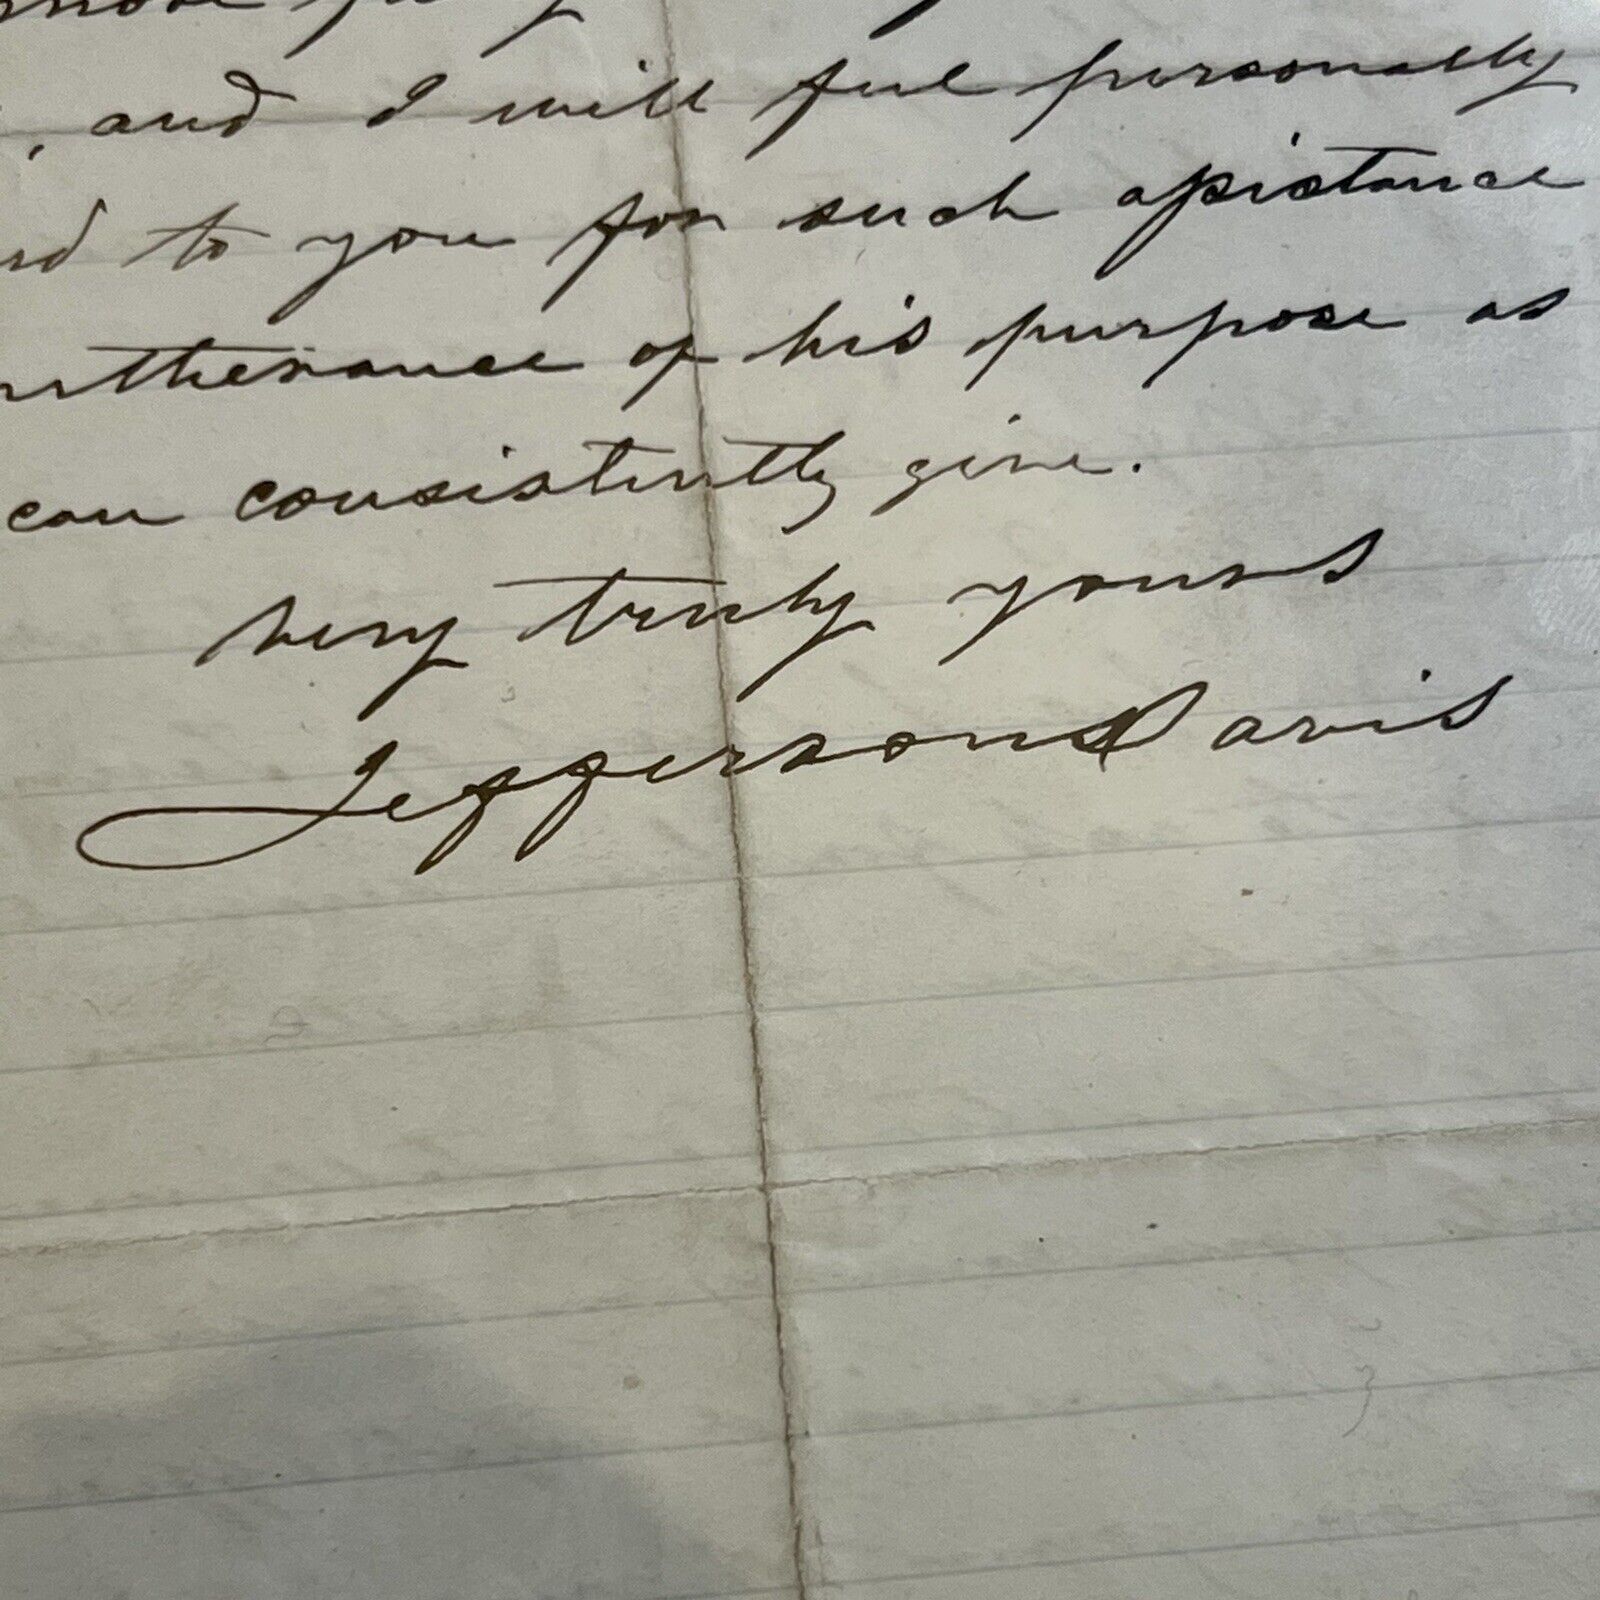 , and I will feel personally
to you for such assistance
furtherance of his purpose as
can consistently give.
very truly yours
Jefferson Davis